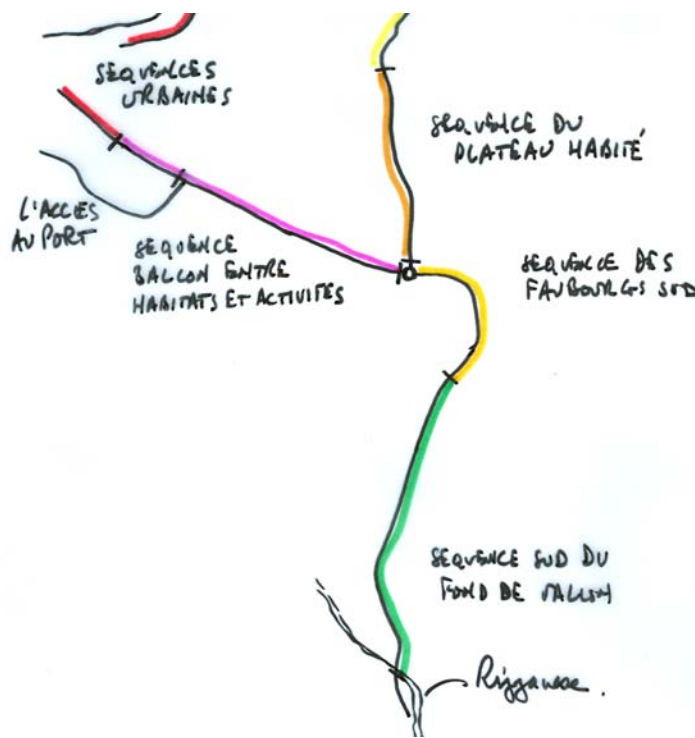 SEQUENCES
URBAINES
SEQUENCE DU
PLATEAU HABITÉ
L'ACCES
AU PORT
SEQUENCE
BALLON ENTRE
HABITATS ET ACTIVITES
SEQUENCE DES
FAUBOURGS SUD
SEQUENCE SUD DU
FOND DE VALLON
Rizzanese.